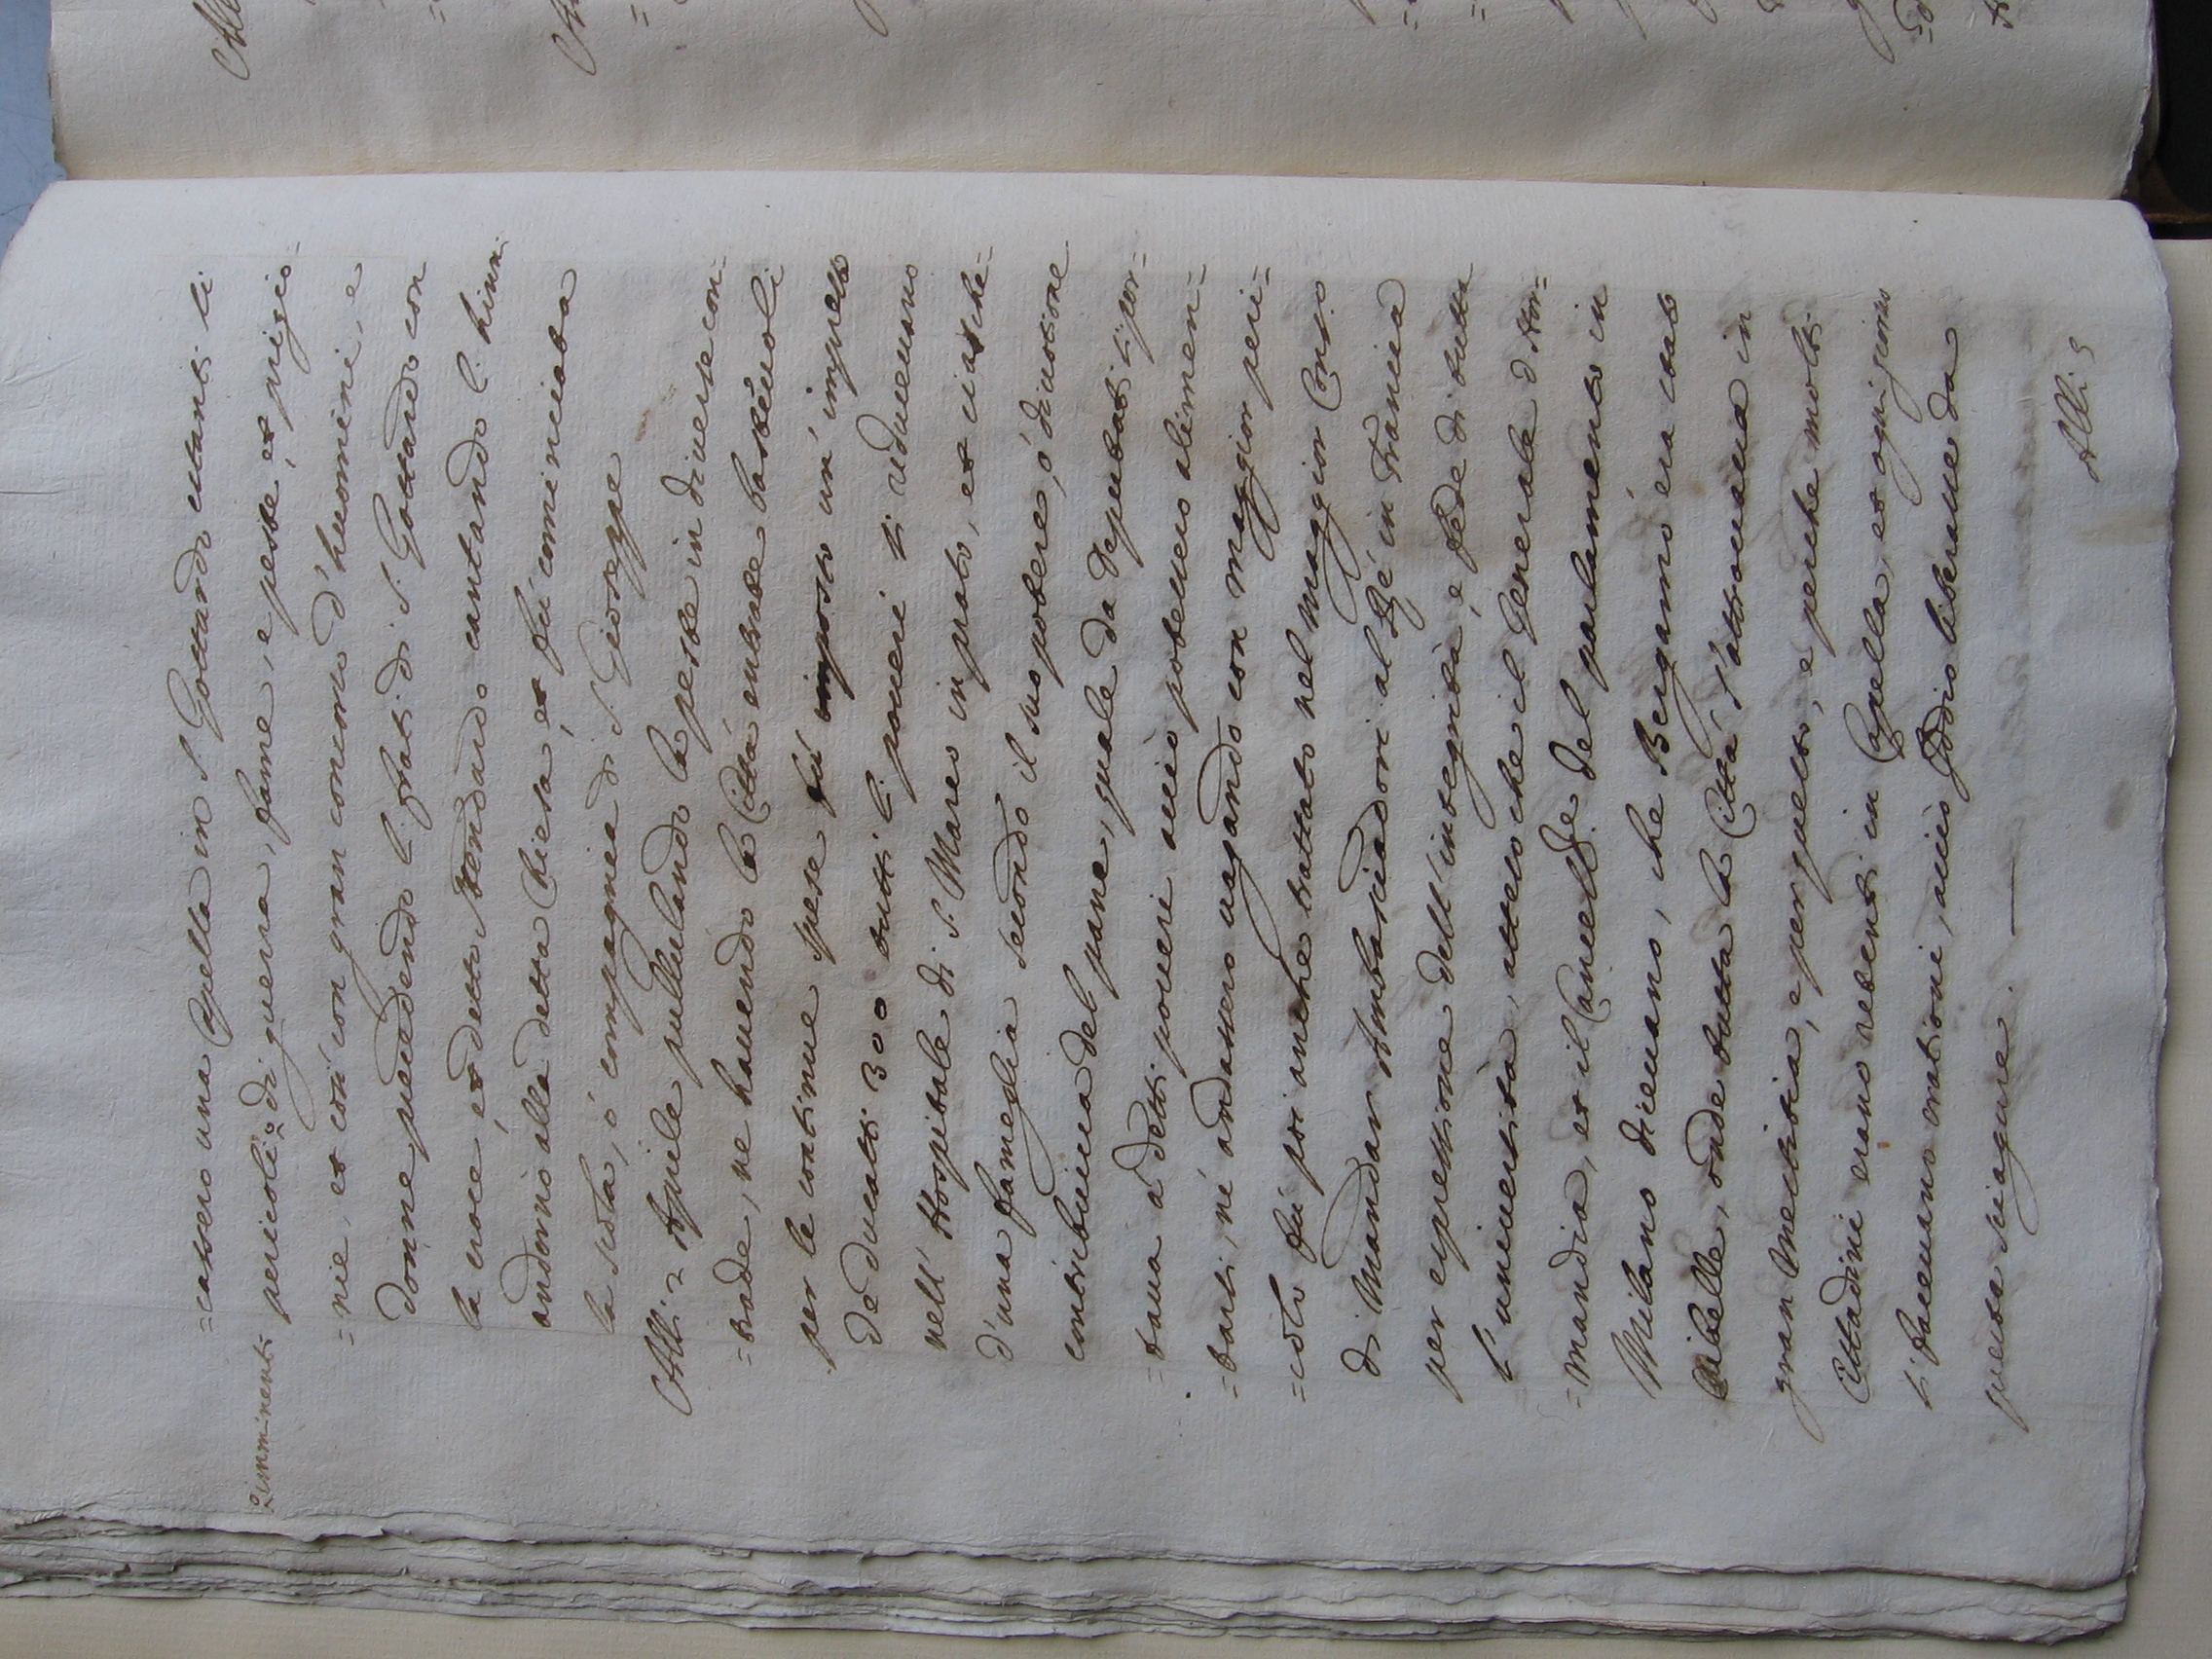 =cassero una Capella in S. Gottardo cittanti li
2imminenti pericoli2 di guerra, fame, e peste, et prigio=
=nie, et così con gran concorso d'huomini, e
donne precedendo li frati di S. Gottardo con
la croce, et detto stendardo cantando l'hinni
andorno alla detta Chiesa, et fù cominciata
la scola, ò compagnia di S. Gioseppe
Alli 2 Aprile pullulando la peste in diverse con=
=trade, ne havendo la Città entrate bastevoli
per le continue spese fù imposto un' impresto
de ducatti 300 tutti li poveri si riducevano
nell' Hospitale di S. Marco in prato, et ciasche=
d'una fameglia secondo il suo potere, ò divotione
contribuiva del pane, quale da deputati si por=
=tava à detti poveri acciò potessero alimen=
=tarsi, nè andassero vagando con maggior peri=
=colo fù poi anche trattato nel Maggior Cons.o
di Mandar Ambasciadori al Rè in Francia
per espressione dell' integrità, e fede di tutta
l'università, atteso che il Generale d Nor=
=mandia, et il Cancell.re del parlamento in
Milano dicevano, che Bergamo era stato
Ribelle, onde tutta la Città s'attrovava in
gran Mestitia, e per questo, e perche molti
Cittadini erano retenti in Capella, et ogni giorno
si facevano orationi, acciò Iddio liberasse da
questa sciagure.
Alli 3